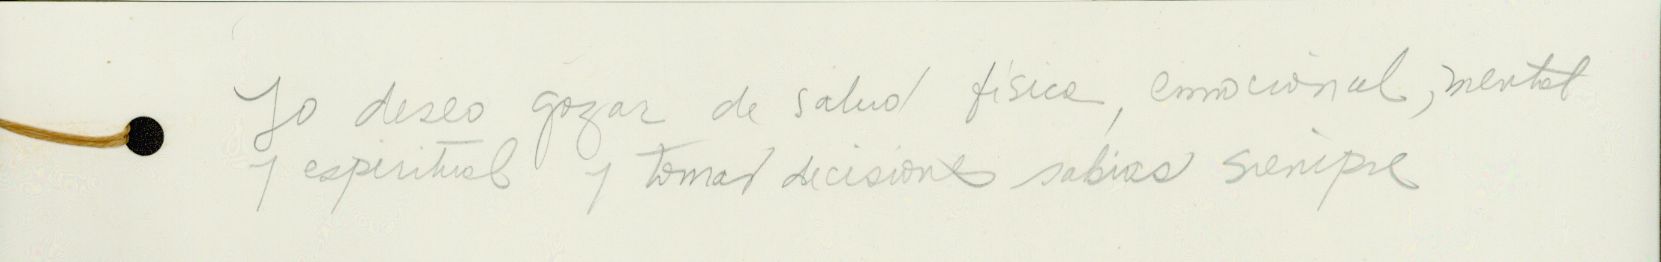 Yo deseo gozar de salud física, emocional, mental
y espiritual y tomar decisiones sabias siempre